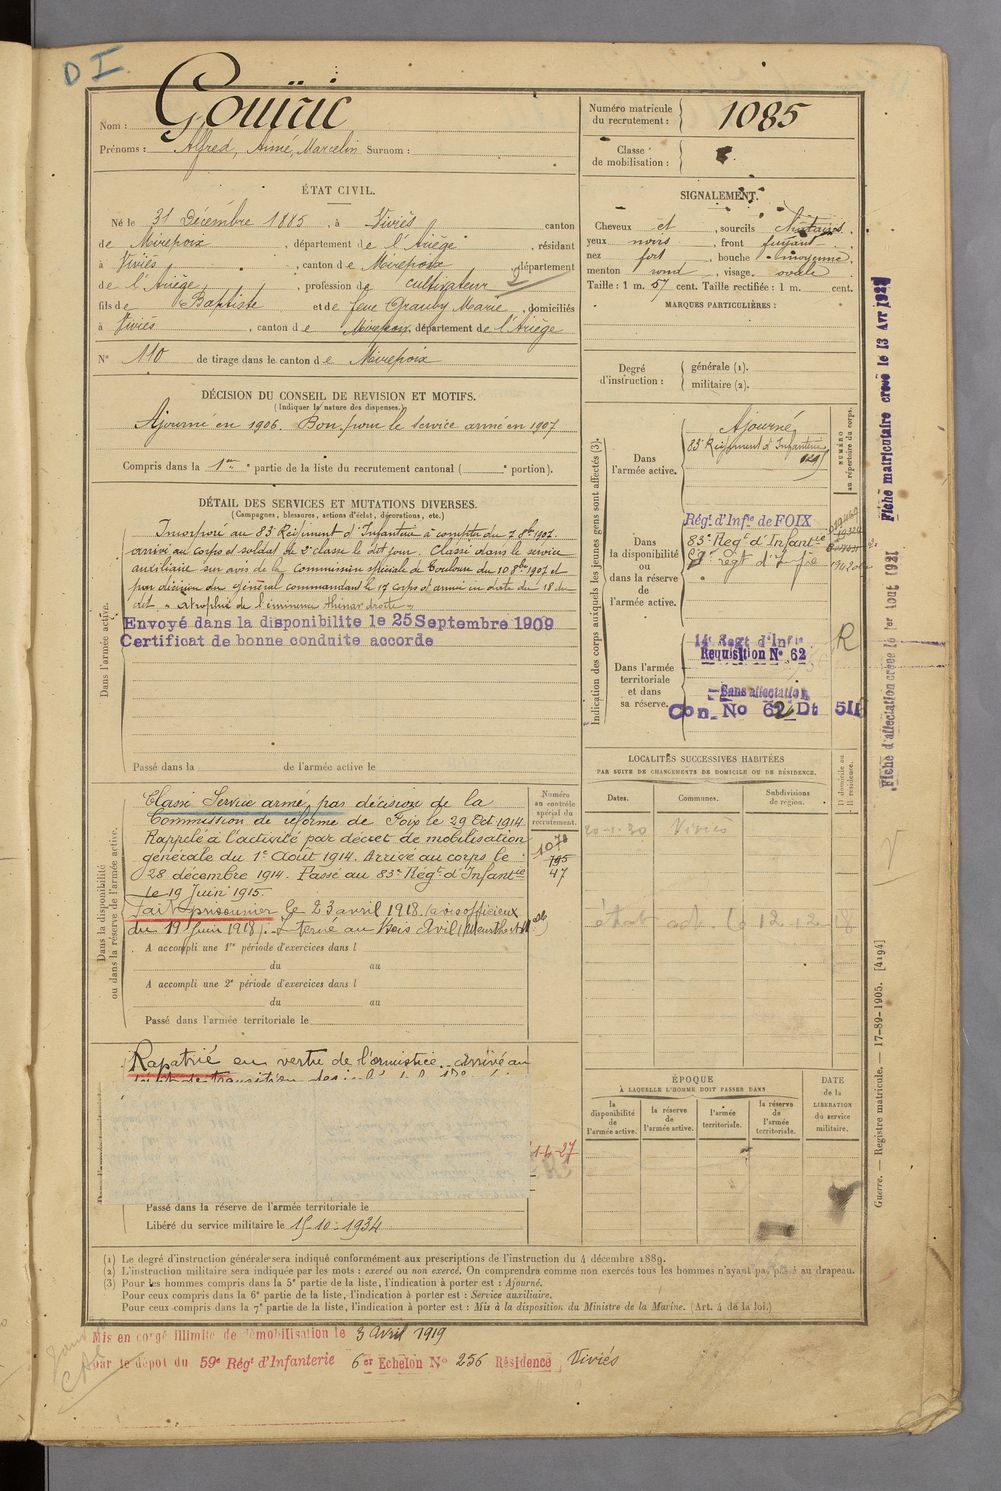 D I
Nom : Gouiric
Prénoms : Alfred, Aimé, Marcelin Surnom :
Numéro matricule du recrutement : 1085
Classe de mobilisation :
ÉTAT CIVIL.
Né le 31 Décembre 1885, à Viviés canton
de Mirepoix, département de l'Ariège, résidant
à Viviés, canton de Mirepoix, département
de l'Ariège, profession de cultivateur
fils de Baptiste et de feue Marie, domiciliés
à Viviés, canton de Mirepoix, département de l'Ariège
N° 110 de tirage dans le canton de Mirepoix
SIGNALEMENT.
Cheveux et, sourcils châtains
yeux noirs, front fuyant
nez fort, bouche moyenne
menton rond, visage ovale
Taille : 1 m. 57 cent. Taille rectifiée : 1 m. cent.
MARQUES PARTICULIÈRES :
Degré d'instruction : générale (1). militaire (2).
DÉCISION DU CONSEIL DE REVISION ET MOTIFS.
(Indiquer la nature des dispenses.)
Ajourné en 1906. Bon pour le service armé en 1907
Compris dans la 1re partie de la liste du recrutement cantonal ( portion).
DÉTAIL DES SERVICES ET MUTATIONS DIVERSES.
(Campagnes, blessures, actions d'éclat, décorations, etc.)
Dans l'armée active.
Incorporé au 83e Régiment d'Infanterie à compter du 7 8bre 1907.
arrivé au corps et soldat de 2e classe le dit jour. Classé dans le service
auxiliaire sur avis de la Commission spéciale de Toulouse du 10 8bre 1907 et
par décision du général commandant le 17e corps d'armée en date du 18 du
dit. « atrophie de l'éminence thénar droite »
Envoyé dans la disponibilite le 25 Septembre 1909
Certificat de bonne conduite accorde
Passé dans la de l'armée active le
Indication des corps auxquels les jeunes gens sont affectés (3).
NUMÉRO au répertoire du corps.
Dans l'armée active.
Ajourné
83e Régiment d'Infanterie
Dans la disponibilité ou dans la réserve de l'armée active.
Régt d'Infie de FOIX
83e Régt d'Infantie
Dans l'armée territoriale et dans sa réserve.
14e Regt d'Infie
Requisition N° 62
R
Sans affectation
Con. No 62 Dt 511
Fiche matriculaire créée le 13 Avr 192
Fiche d'affectation créée le 1er Aout 1921
Dans la disponibilité ou dans la réserve de l'armée active.
Classé Service armé, par décision de la
Commission de réforme de Foix le 29 Oct 1914.
Rappelé à l'activité par décret de mobilisation
générale du 1er Août 1914. Arrivé au corps le
28 décembre 1914. Passé au 83e Régt d'Infantie
le 19 Juin 1915.
Fait prisonnier le 23 avril 1918 (avis officieux
du 19 Juin 1918). Interné au Bois Avril (Meurthe et
A accompli une 1re période d'exercices dans l
du au
A accompli une 2e période d'exercices dans l
du au
Passé dans l'armée territoriale le
Numéro au contrôle spécial du recrutement.
1078
795
47
LOCALITÉS SUCCESSIVES HABITÉES
PAR SUITE DE CHANGEMENTS DE DOMICILE OU DE RÉSIDENCE.
Dates. Communes. Subdivisions de région. D domicile ou R résidence.
20-1-20 Viviés
12 12 18
Rapatrié en vertu de l'armistice. Arrivé au
1-4-27
Passé dans la réserve de l'armée territoriale le
Libéré du service militaire le 15-10-1934
ÉPOQUE
À LAQUELLE L'HOMME DOIT PASSER DANS
la disponibilité de l'armée active. la réserve de l'armée active. l'armée territoriale. la réserve de l'armée territoriale.
DATE de la LIBÉRATION du service militaire.
(1) Le degré d'instruction générale sera indiqué conformément aux prescriptions de l'instruction du 4 décembre 1889.
(2) L'instruction militaire sera indiquée par les mots : exercé ou non exercé. On comprendra comme non exercés tous les hommes n'ayant pas passé au drapeau.
(3) Pour les hommes compris dans la 5e partie de la liste, l'indication à porter est : Ajourné.
Pour ceux compris dans la 6e partie de la liste, l'indication à porter est : Service auxiliaire.
Pour ceux compris dans la 7e partie de la liste, l'indication à porter est : Mis à la disposition du Ministre de la Marine. (Art. 4 de la loi.)
Guerre. — Registre matricule. — 17-89-1905. [4194]
Mis en congé illimité de démobilisation le 3 Avril 1919
par le dépôt du 59e Régt d'Infanterie 6er Echelon N° 256 Résidence Viviés